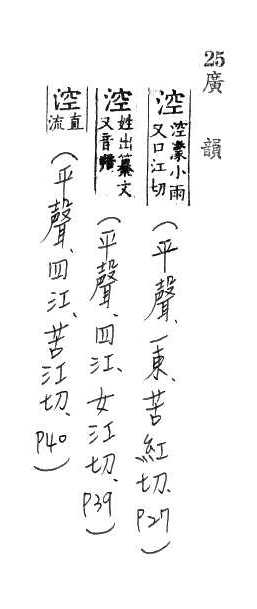 25廣韻
涳 涳濛小雨又口江切(平聲、一東、苦紅切、P27)
涳 姓出纂文又音(平聲、四江、女江切、P39)
涳 直流(平聲、四江、苦江切、P40)